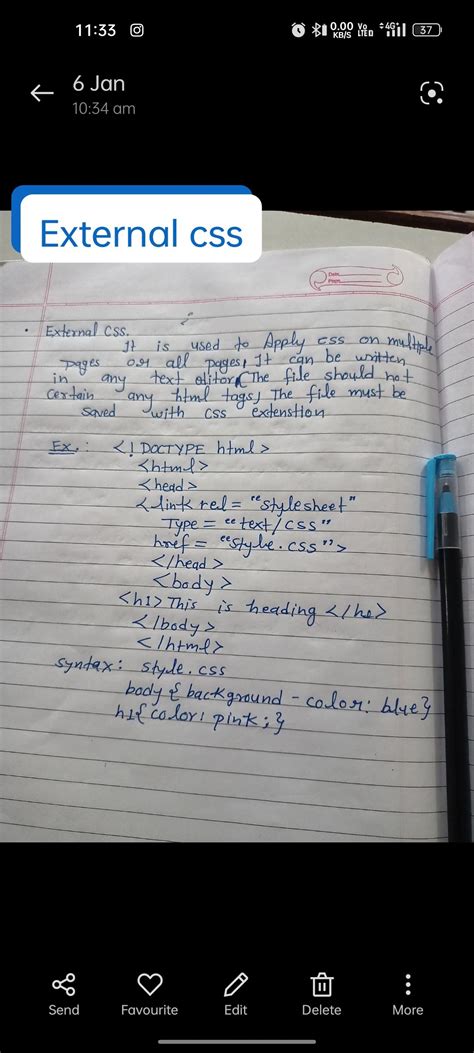 11:33
0.00 KB/S Vo LTE 4G 37
6 Jan
10:34 am
External css
Date
External CSS.
It is used to Apply css on multiple
pages or all pages, It can be written
in any text editor, (The file should not
certain any html tags, The file must be
saved with css extenstion
Ex.: <! DOCTYPE html>
<html>
<head>
<link rel = "stylesheet"
Type = "text/css"
href = "style.css">
</head>
<body>
<h1> This is heading </h1>
</body>
</html>
syntax: style.css
body { background - color: blue}
h1{ color: pink; }
Send Favourite Edit Delete More